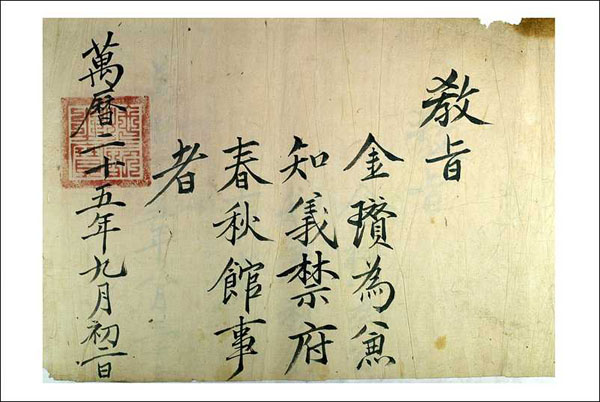 敎旨
金瓚為兼
知義禁府
春秋館事
者
萬曆二十五年九月初二日